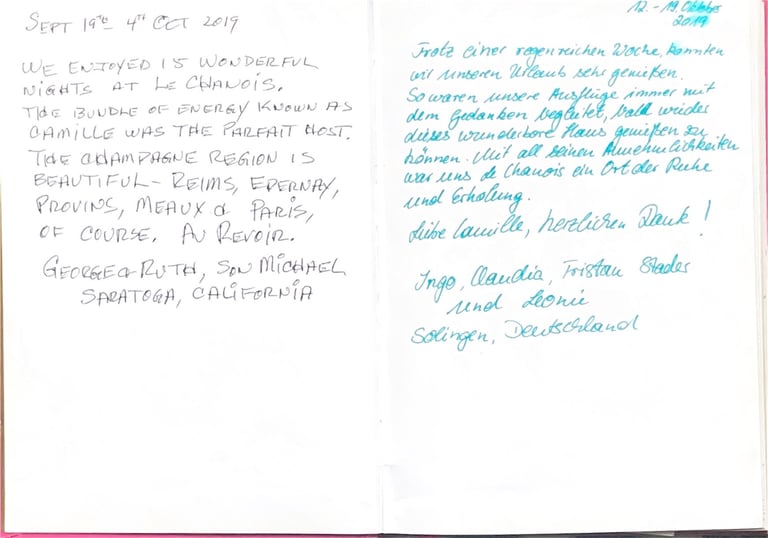 SEPT 19TH - 4TH OCT 2019
WE ENJOYED 15 WONDERFUL
NIGHTS AT LE CHANOIS.
THE BUNDLE OF ENERGY KNOWN AS
CAMILLE WAS THE PARFAIT HOST.
THE CHAMPAGNE REGION IS
BEAUTIFUL - REIMS, EPERNAY,
PROVINS, MEAUX & PARIS,
OF COURSE. AU REVOIR.
GEORGE & RUTH, SON MICHAEL
SARATOGA, CALIFORNIA
12. - 19. Oktober
2019
Trotz einer regenreichen Woche, konnten
wir unseren Urlaub sehr genießen.
So waren unsere Ausflüge immer mit
dem Gedanken begleitet, bald wieder
dieses wunderbare Haus genießen zu
können. Mit all seinen Annehmlichkeiten
war uns le Chanois ein Ort der Ruhe
und Erholung.
Liebe Camille, herzlichen Dank!
Ingo, Claudia, Tristan Stader
und Leonie
Solingen, Deutschland